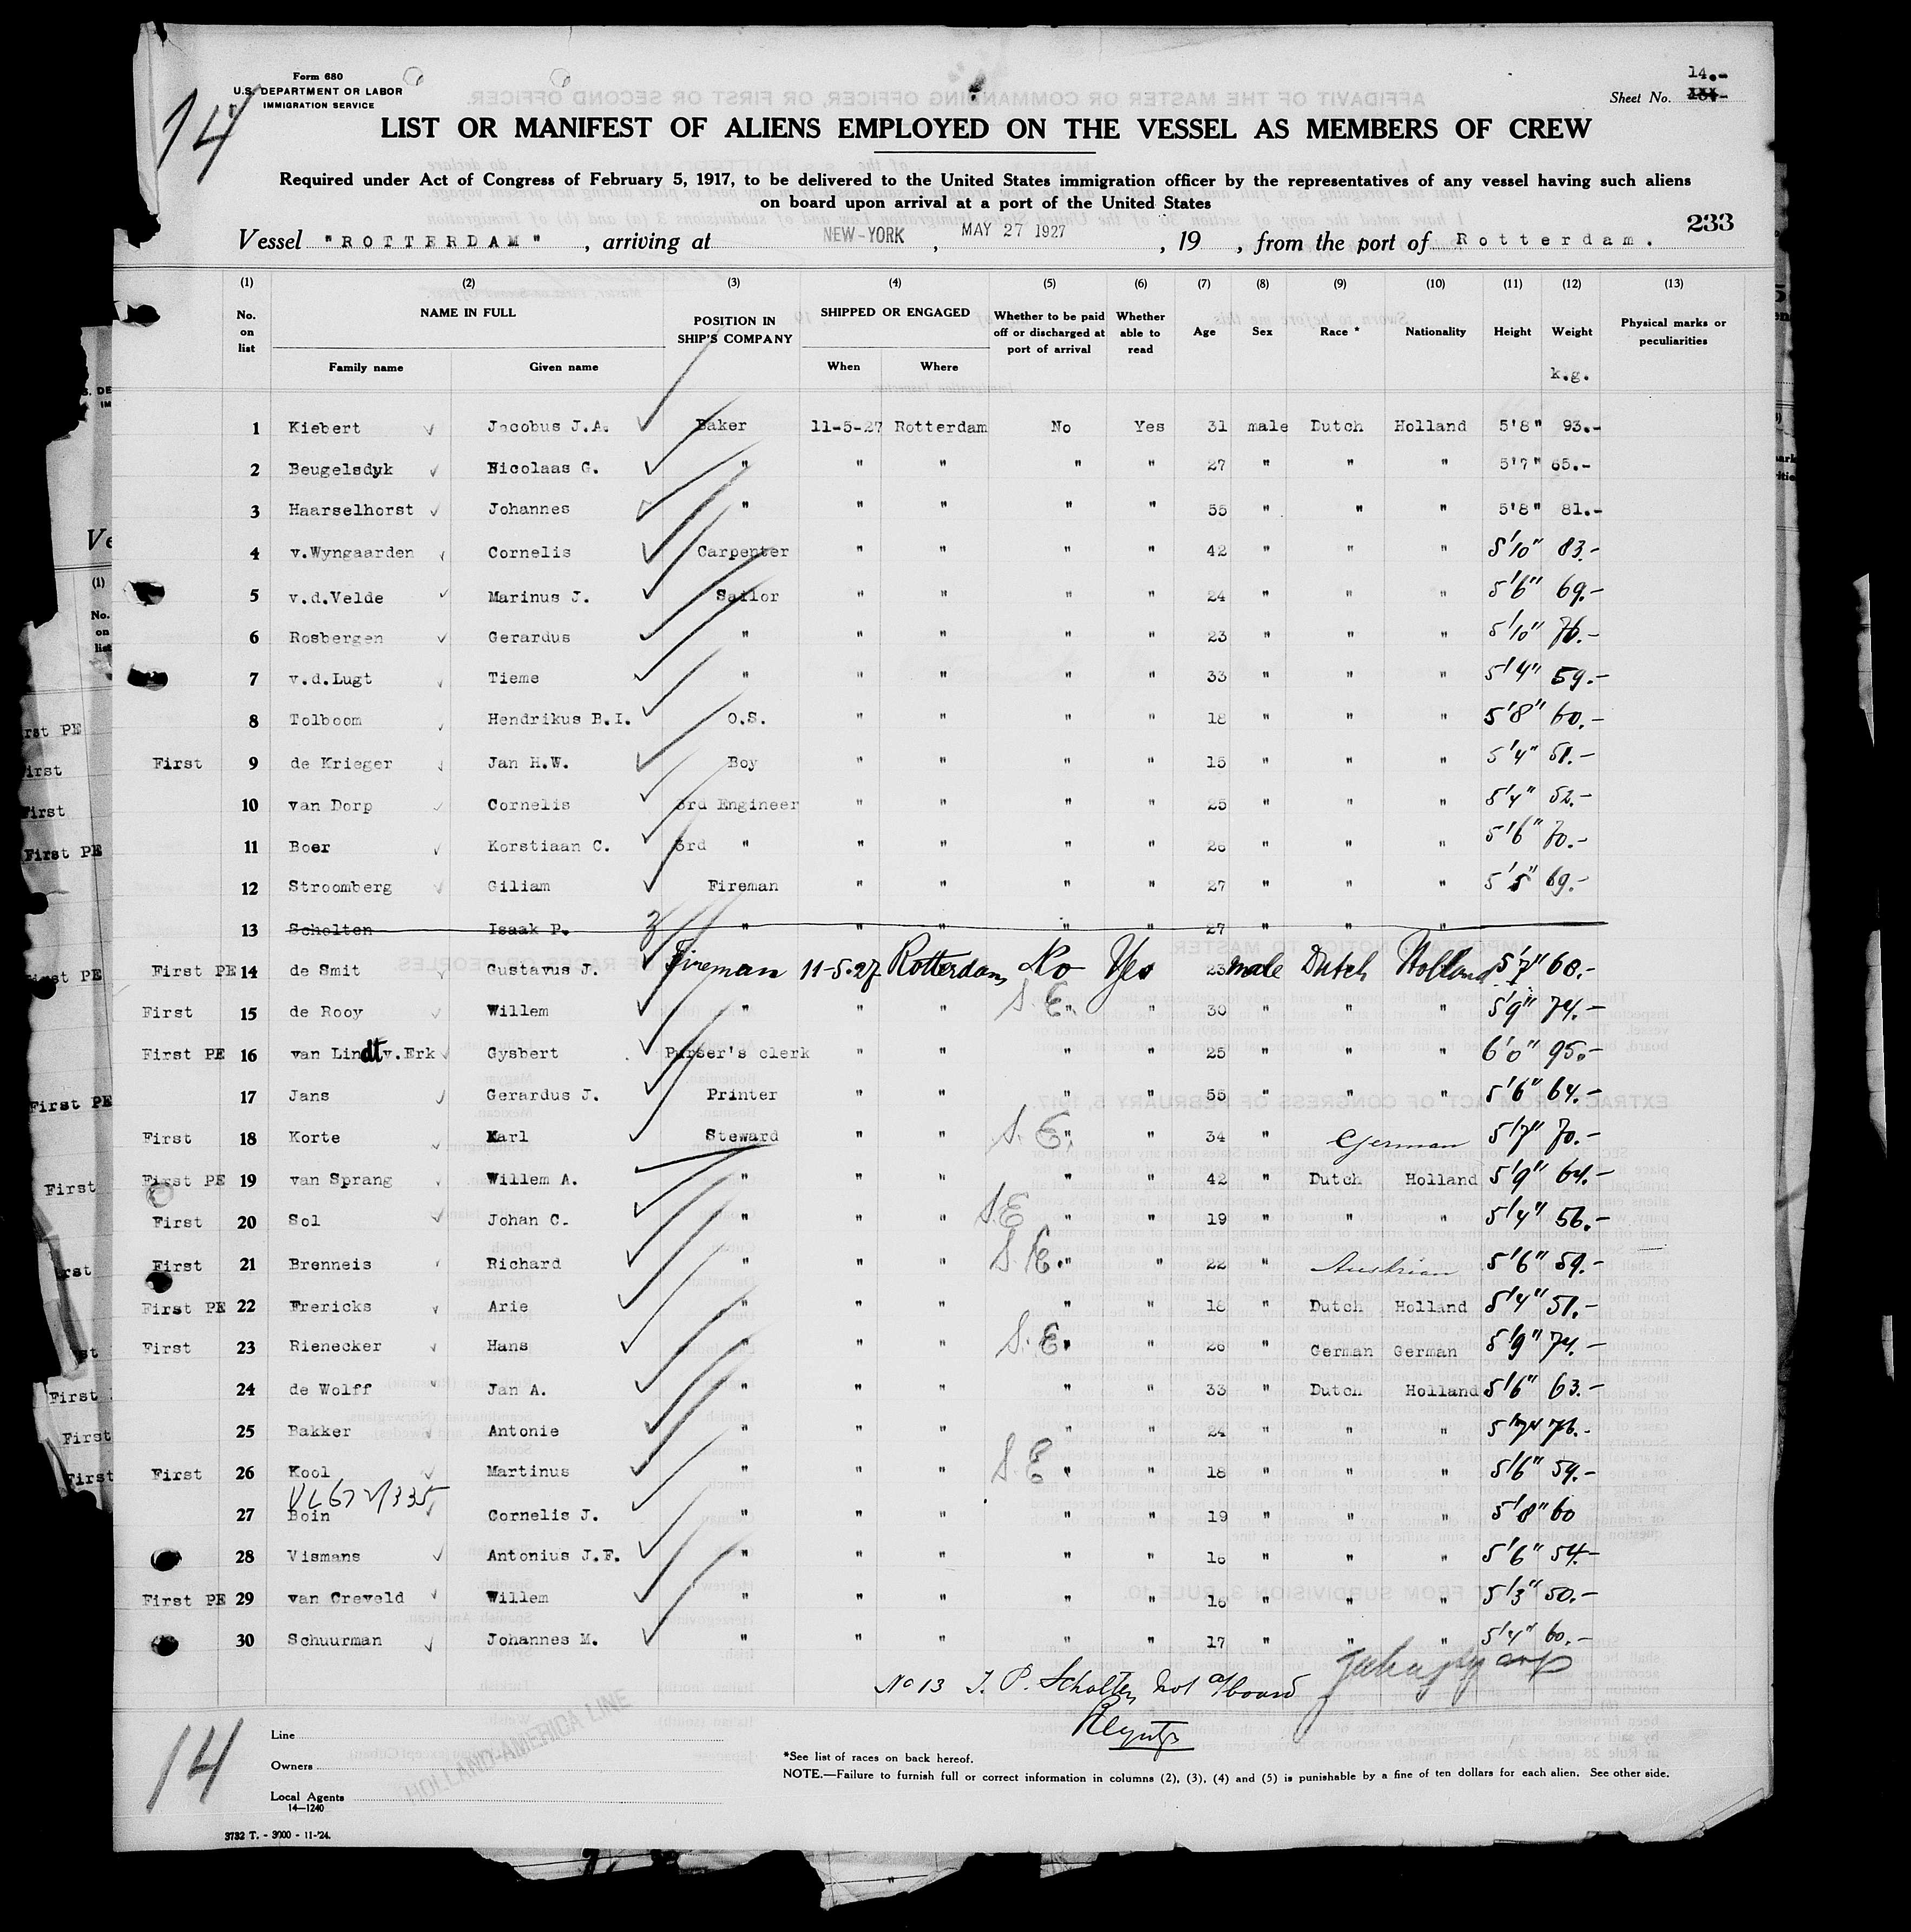 14
Form 680
U.S. DEPARTMENT OR LABOR
IMMIGRATION SERVICE
14.-
Sheet No.
LIST OR MANIFEST OF ALIENS EMPLOYED ON THE VESSEL AS MEMBERS OF CREW
Required under Act of Congress of February 5, 1917, to be delivered to the United States immigration officer by the representatives of any vessel having such aliens
on board upon arrival at a port of the United States
233
Vessel "ROTTERDAM" , arriving at NEW-YORK , MAY 27 1927 , 19 , from the port of Rotterdam.
(1) (2) (3) (4) (5) (6) (7) (8) (9) (10) (11) (12) (13)
No. on list NAME IN FULL Family name Given name POSITION IN SHIP'S COMPANY SHIPPED OR ENGAGED When Where Whether to be paid off or discharged at port of arrival Whether able to read Age Sex Race * Nationality Height Weight k.g. Physical marks or peculiarities
1 Kiebert Jacobus J.A. Baker 11-5-27 Rotterdam No Yes 31 male Dutch Holland 5'8" 93.-
2 Beugelsdyk Nicolaas G. " " " " " 27 " " " 5'7" 65.-
3 Haarselhorst Johannes " " " " " 55 " " " 5'8" 81.-
4 v.Wyngaarden Cornelis Carpenter " " " " 42 " " " 5'10" 83.-
5 v.d.Velde Marinus J. Sailor " " " " 24 " " " 5'6" 69.-
6 Rosbergen Gerardus " " " " " 23 " " " 5'10" 76.-
7 v.d.Lugt Tieme " " " " " 33 " " " 5'4" 59.-
8 Tolboom Hendrikus B.I. O.S. " " " " 18 " " " 5'8" 60.-
First 9 de Krieger Jan H.W. Boy " " " " 15 " " " 5'4" 51.-
10 van Dorp Cornelis 3rd Engineer " " " " 25 " " " 5'4" 52.-
11 Boer Korstiaan C. 3rd " " " " " 26 " " " 5'6" 70.-
12 Stroomberg Giliam Fireman " " " " 27 " " " 5'5" 69.-
13 Scholten Isaak P. " " " " " 27 " " "
First PE 14 de Smit Gustavus J. Fireman 11-5-27 Rotterdam No Yes 23 male Dutch Holland 5'7" 68.-
First 15 de Rooy Willem " " " S.E. " " 30 " " " 5'9" 74.-
First PE 16 van Lindt v.Erk Gysbert Purser's clerk " " " " 25 " " " 6'0" 95.-
17 Jans Gerardus J. Printer " " " " 55 " " " 5'6" 64.-
First 18 Korte Karl Steward " " S.E. " " 34 " German 5'7" 70.-
First PE 19 van Sprang Willem A. " " " " " 42 " Dutch Holland 5'9" 64.-
First 20 Sol Johan C. " " " S.E " " 19 " " " 5'4" 56.-
First 21 Brenneis Richard " " " S.E. " " 22 " Austrian 5'6" 59.-
First PE 22 Frericks Arie " " " " " 18 " Dutch Holland 5'4" 51.-
First 23 Rienecker Hans " " " S.E. " " 26 " German German 5'9" 74.-
24 de Wolff Jan A. " " " " " 33 " Dutch Holland 5'6" 63.-
25 Bakker Antonie " " " " " 24 " " " 5'7" 76.-
First 26 Kool Martinus " " " S.E " " 18 " " " 5'6" 59.-
27 Boin Cornelis J. " " " " " 19 " " " 5'8" 60
28 Vismans Antonius J.F. " " " " " 16 " " " 5'6" 54.-
First PE 29 van Creveld Willem " " " " " 16 " " " 5'3" 50.-
30 Schuurman Johannes M. " " " " " 17 " " " 5'4" 60.-
No 13 I. P. Scholten not a/board
14
Line
Owners
Local Agents
HOLLAND-AMERICA LINE
14—1240
3732 T. - 3000 - 11-'24.
*See list of races on back hereof.
NOTE.—Failure to furnish full or correct information in columns (2), (3), (4) and (5) is punishable by a fine of ten dollars for each alien. See other side.